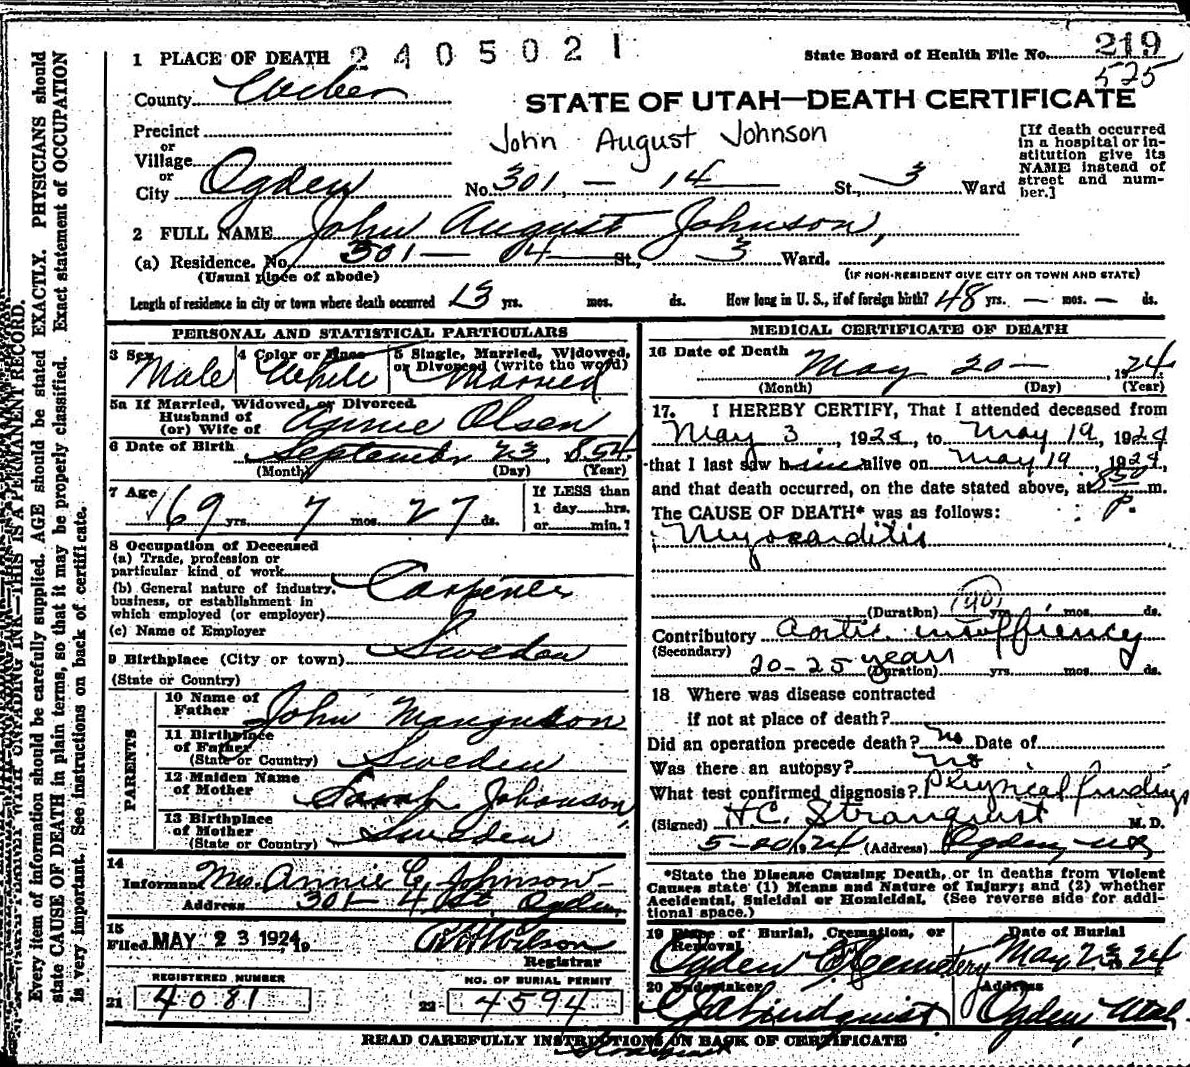 1 PLACE OF DEATH 2405021
State Board of Health File No. 219
525
County Weber
STATE OF UTAH—DEATH CERTIFICATE
Precinct
or
Village
or
City Ogden
John August Johnson
No. 301 — 14 — St., 3 Ward
[If death occurred
in a hospital or in-
stitution give its
NAME instead of
street and num-
ber.]
2 FULL NAME John August Johnson,
(a) Residence. No. 301 — St., 3 Ward.
(Usual place of abode)
(IF NON-RESIDENT GIVE CITY OR TOWN AND STATE)
Length of residence in city or town where death occurred 13 yrs. mos. ds. How long in U. S., if of foreign birth? 48 yrs. — mos. — ds.
PERSONAL AND STATISTICAL PARTICULARS
3 Sex Male
4 Color or Race White
5 Single, Married, Widowed,
or Divorced (write the word)
Married
5a If Married, Widowed, or Divorced
Husband of
(or) Wife of Annie Olsen
6 Date of Birth September 23, 1854
(Month) (Day) (Year)
7 Age 69 yrs. 7 mos. 27 ds.
If LESS than
1 day hrs.
or min.?
8 Occupation of Deceased
(a) Trade, profession or
particular kind of work Carpenter
(b) General nature of industry,
business, or establishment in
which employed (or employer)
(c) Name of Employer
9 Birthplace (City or town) Sweden
(State or Country)
PARENTS
10 Name of
Father John Manguson
11 Birthplace
of Father
(State or Country) Sweden
12 Maiden Name
of Mother Sarah Johanson
13 Birthplace
of Mother
(State or Country) Sweden
14
Informant Mrs. Annie C. Johnson
Address 301 St. Ogden
15
Filed MAY 23 1924, 19
Wilson
Registrar
REGISTERED NUMBER
21 4081
NO. OF BURIAL PERMIT
22 4594
MEDICAL CERTIFICATE OF DEATH
16 Date of Death May 20 — 1924
(Month) (Day) (Year)
17. I HEREBY CERTIFY, That I attended deceased from
May 3, 1924, to May 19, 1924
that I last saw him alive on May 19, 1924,
and that death occurred, on the date stated above, at 8 50 P. m.
The CAUSE OF DEATH* was as follows:
Myocarditis
(Duration) yrs. mos. ds.
Contributory Aortic insufficiency
(Secondary)
20-25 years
(Duration) yrs. mos. ds.
18 Where was disease contracted
if not at place of death?
Did an operation precede death? no Date of
Was there an autopsy? no
What test confirmed diagnosis? Physical findings
(Signed) H.C. Stranquist M. D.
5-20 1924 (Address) Ogden
*State the Disease Causing Death, or in deaths from Violent
Causes state (1) Means and Nature of Injury; and (2) whether
Accidental, Suicidal or Homicidal. (See reverse side for addi-
tional space.)
19 Place of Burial, Cremation, or
Removal
Ogden Cemetery
Date of Burial
May 23 1924
20 Undertaker
Lindquist
Address
Ogden, Utah
READ CAREFULLY INSTRUCTIONS ON BACK OF CERTIFICATE
Every item of information should be carefully supplied. AGE should be stated EXACTLY. PHYSICIANS should
state CAUSE OF DEATH in plain terms, so that it may be properly classified. Exact statement of OCCUPATION
is very important. See instructions on back of certificate.